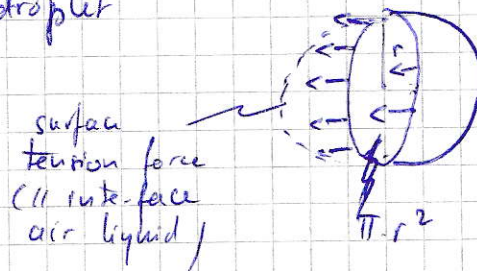 droplet
r
surface
tension force
(// interface
air liquid)
π.r²